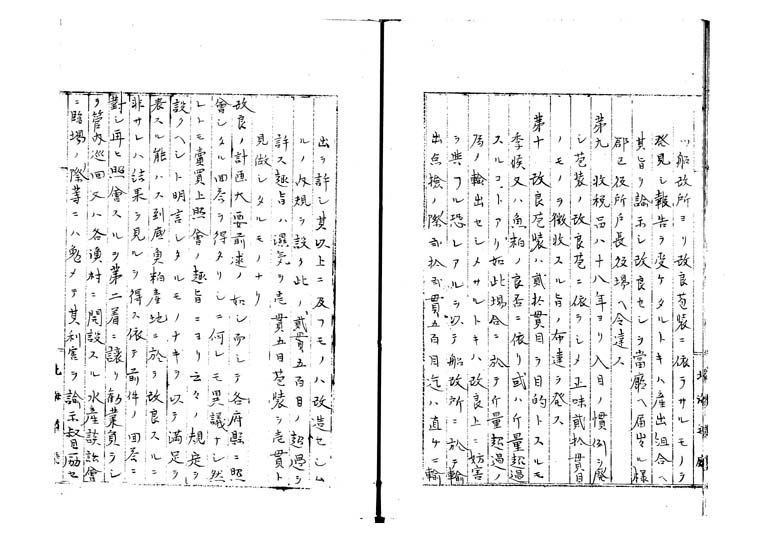 ハ船改所ヨリ改良苞装ニ依ラサルモノヲ
発見シ報告ヲ受ケタルトキハ産出組合ヘ
其旨ヲ諭示シ改良セシメ当廳ヘ届出ル様
郡区役所戸長役場ヘ令達ス
第九 収税品ハ十八年ヨリ入目ノ慣例ヲ廃
シ苞装ノ改良苞ニ依ラシメ正味貳拾貫目
ノモノヲ徴收スル旨ノ布達ヲ発ス
第十 改良苞装ハ貳拾貫目ヲ目的トスルモ
季候又ハ魚粕ノ良否ニ依リ或ハ斤量超過
スルコトアリ如此場合ニ於テ斤量超過ノ
為ノ輸出セシメサルトキハ改良上ニ妨害
ヲ與フル恐レアルヲ以テ船改所ニ於テ輸
出点撿ノ際貳拾貳貫五百目迄ハ直ケニ輸
出ヲ許シ其以上ニ及フモノハ改造セシム
ルノ内規ヲ設ク此ノ貳貫五百目ノ超過ヲ
許ス趣旨ハ濕気ヲ壱貫五目苞装ヲ壱貫ト
見做シタルモノナリ
改良ノ計画大要前述ノ如シ而シテ各府縣ニ照
會シタル回答ヲ得タリシニ何レモ異議ナシ然
レトモ賣買上照會ノ趣旨ニヨリ云々ノ規定ヲ
設クヘシト明言シタルモノナキヲ以テ満足ヲ
表スル能ハス到底魚粕産地ニ於テ改良スルニ
非サレハ結果ヲ見ルヲ得ス依テ前件ノ回答ニ
對シ再ヒ照會スルヲ第二着ニ譲リ勧業員ヲシ
テ管内巡回又ハ各漁村ニ開設スル水産談話會
ニ臨場ノ際等ニハ勉メテ其利害ヲ諭示
北海道廳